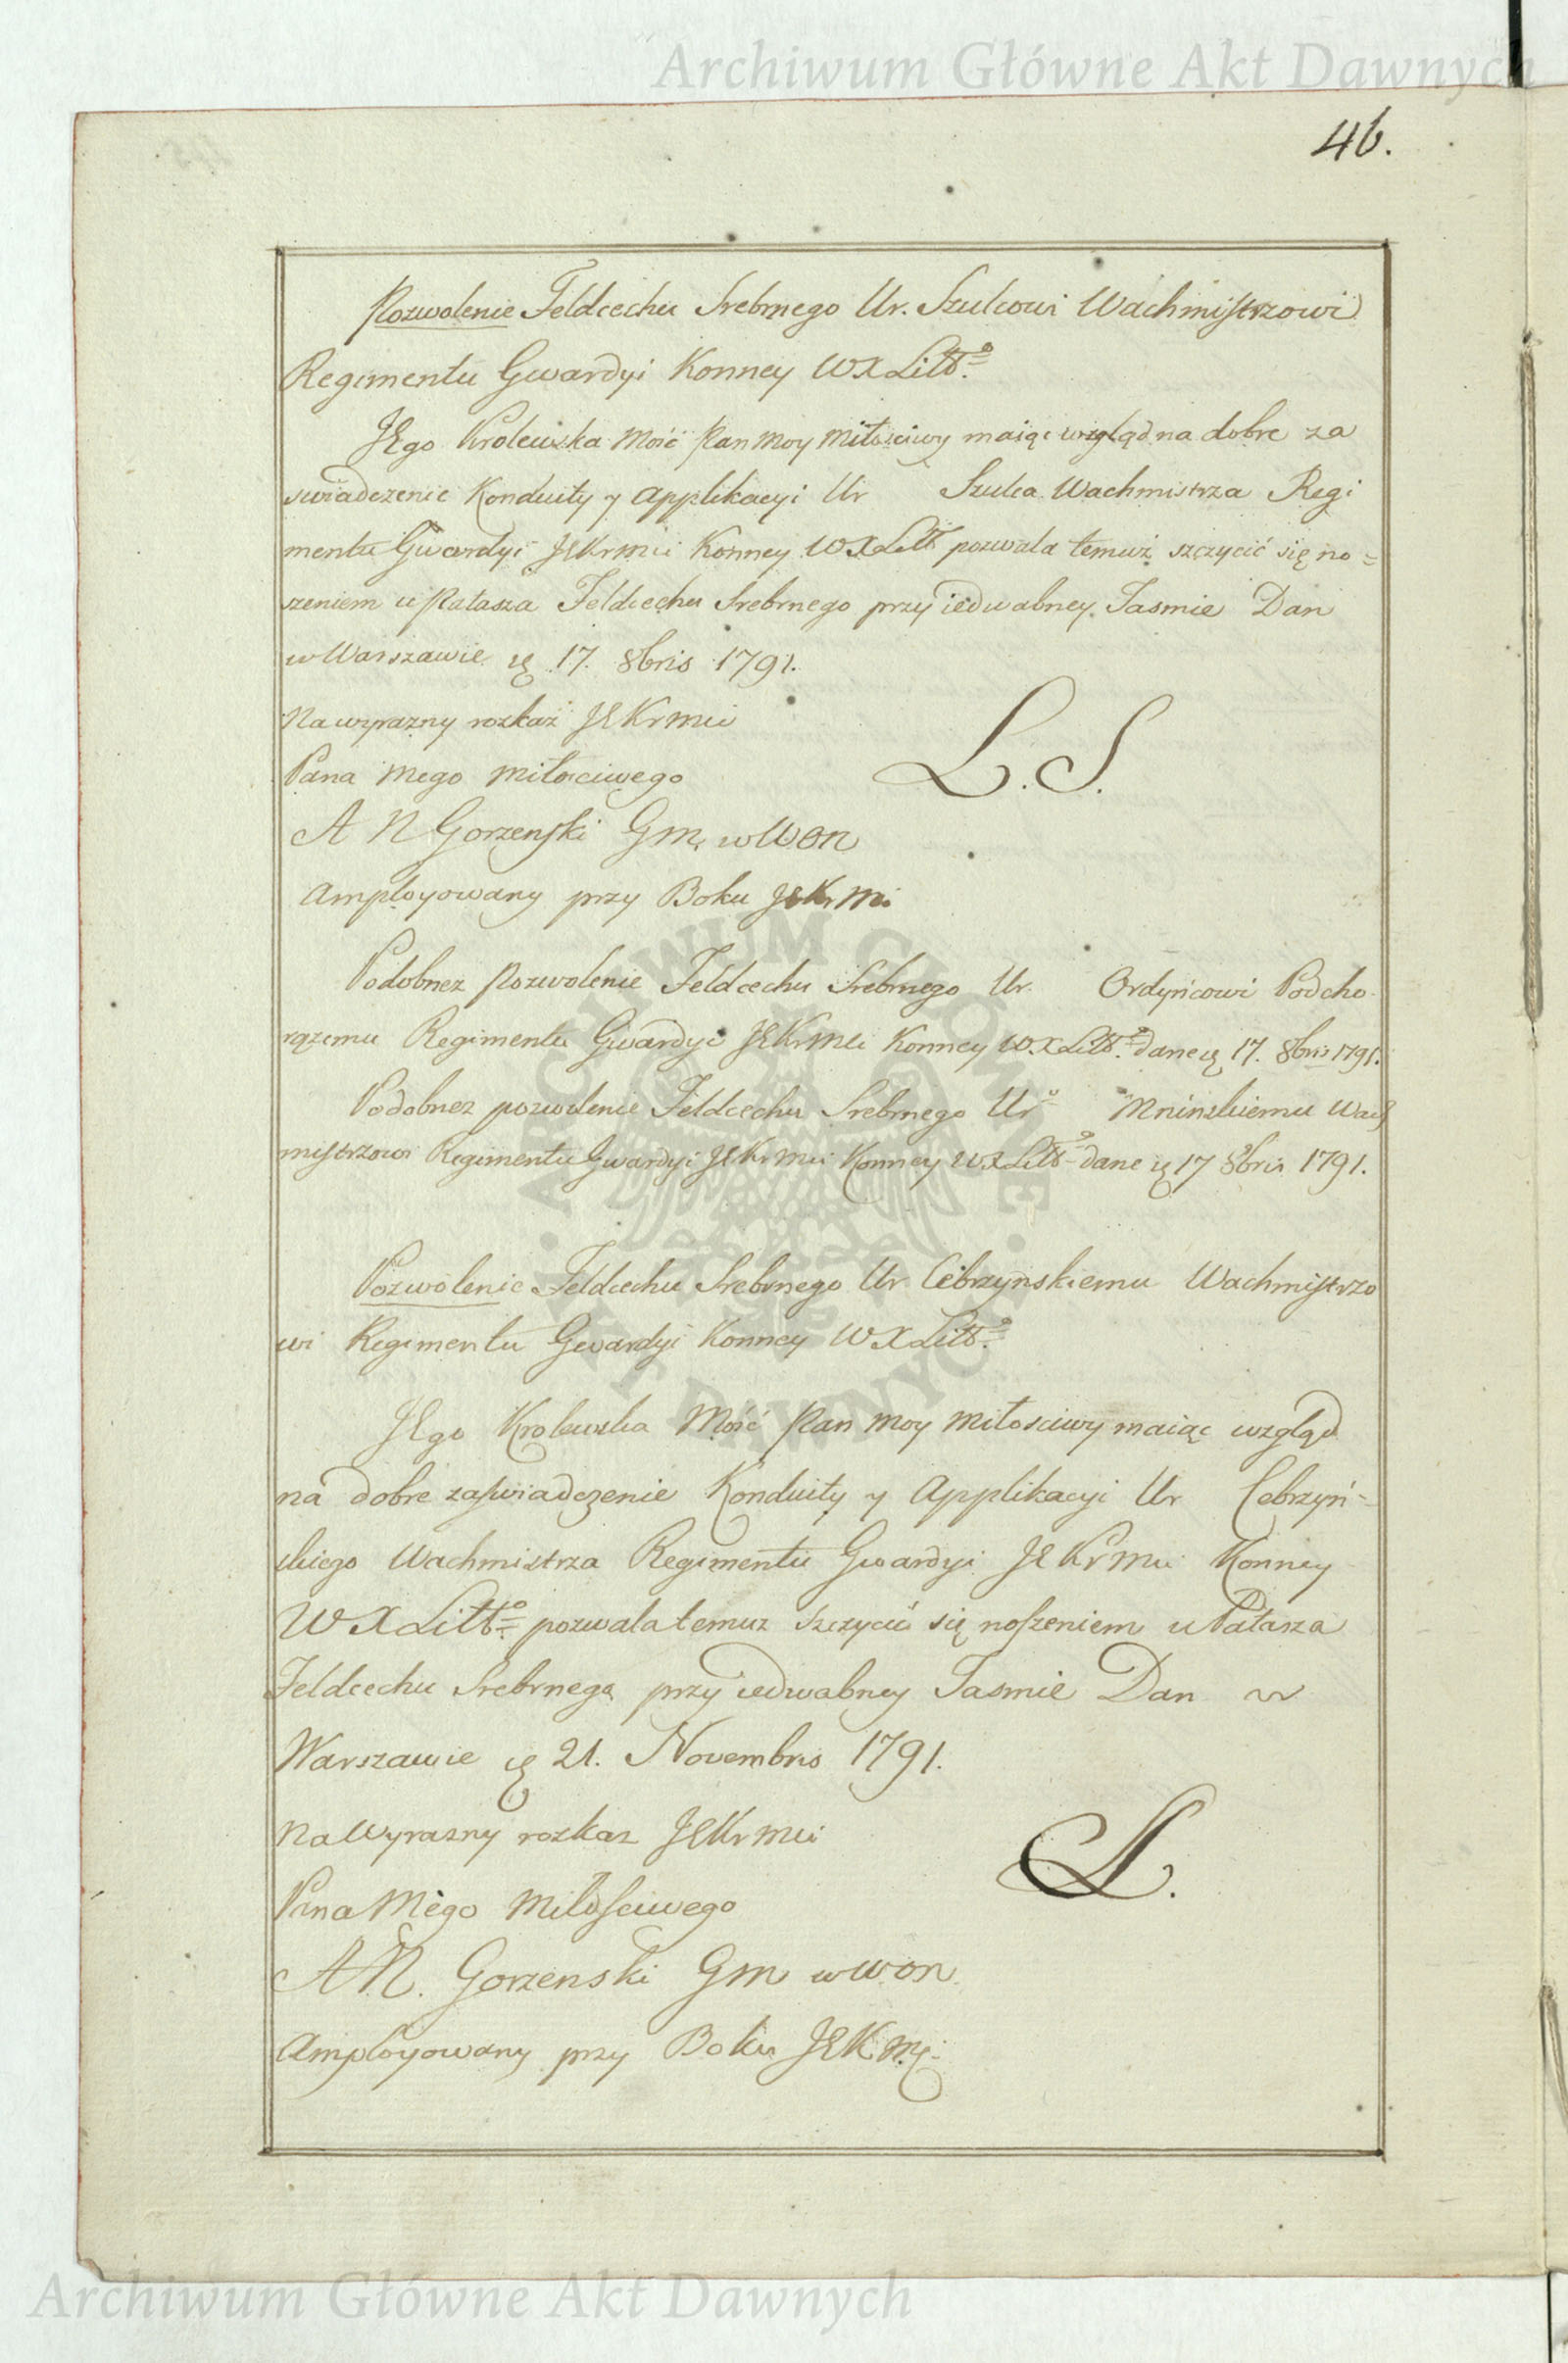 Archiwum Główne Akt Dawnych
46.
Pozwolenie Feldcechu Srebrnego Ur. Szulcowi Wachmistrzowi
Regimentu Gwardyi Konney WXLittº.
JEgo Krolewska Mość Pan moy miłościwy maiąc wzgląd na dobre za
swiadczenie Konduity y applikacyi Ur Szulca Wachmistrza Regi
mentu Gwardyi JEKrmci Konney WXLitt pozwala temuż szczycić się no=
szeniem u Pałasza Feldcechu Srebrnego przy iedwabney Tasmie Dan
w Warszawie 17. 8bris 1791.
Na wyrazny rozkaz JEKrmci
Pana mego miłosciwego
L. S.
A N Gorzenski Gm. w WOn
Amployowany przy Boku JEKrMci
Podobnez Pozwolenie Feldcechu Srebrnego Ur. Ordyńcowi Podcho
rązemu Regimentu Gwardyi JEKrMci Konney W.XLittº. dane 17. 8bris 1791.
Podobnez pozwolenie Feldcechu Srebrnego Urº Mninskiemu Wach
mistrzowi Regimentu Gwardyi JEKrmci Konney WXLittº dane 17 8bris 1791.
Pozwolenie Feldcechu Srebrnego Ur Cebrzynskiemu Wachmistrzo
wi Regimentu Gwardyi Konney WXLittº.
JEgo Krolewska Mość Pan moy miłosciwy maiąc wzgląd
na dobre zaswiadczenie Konduity y Applikacyi Ur Cebrzyń=
skiego Wachmistrza Regimentu Gwardyi JEKrmci Konney
W XLittº. pozwala temuz szczycić się noszeniem u Pałasza
Feldcechu Srebrnego przy iedwabney Tasmie Dan w
Warszawie 21. Novembris 1791.
Na Wyrazny rozkaz JEKrmci
Pana Mego Miłosciwego
LS.
A.N. Gorzenski Gm w WOn
Amployowany przy Boku JEKMci
ARCHIWUM GŁÓWNE AKT DAWNYCH
Archiwum Główne Akt Dawnych